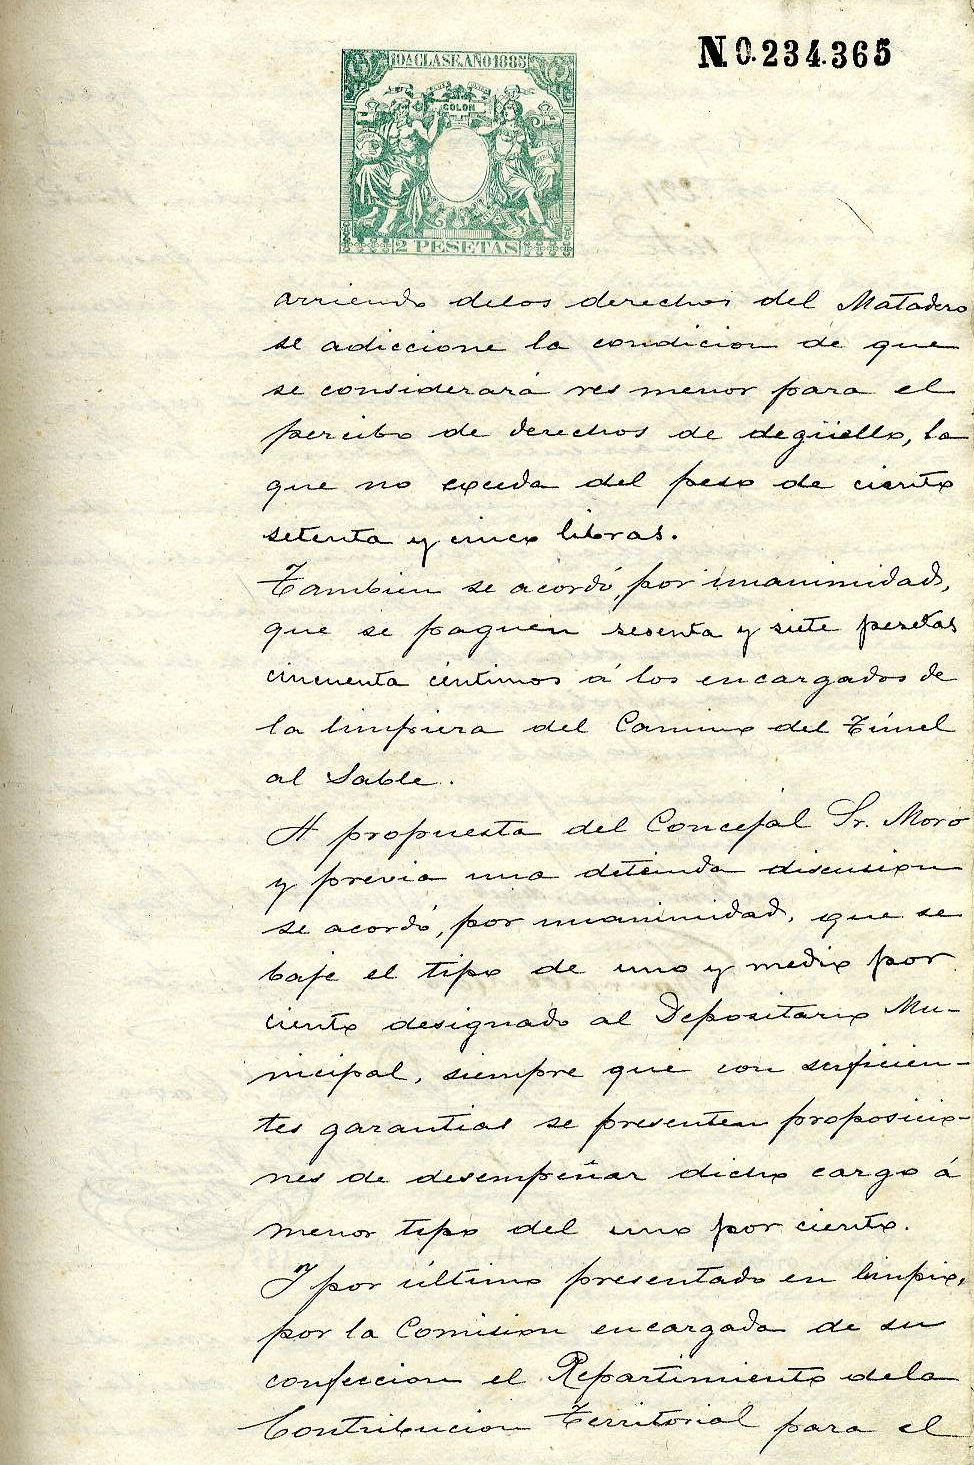 N 0.234.365
10ª CLASE. AÑO 1885
COLON
2 PESETAS
arriendo delos derechos del Matadero
se adiccione la condicion de que
se considerará res menor para el
percibo de derechos de degüello, la
que no exceda del peso de ciento
setenta y cinco libras.
Tambien se acordó, por unanimidad,
que se paguen sesenta y siete pesetas
cincuenta céntimos á los encargados de
la limpiera del Camino del Túnel
al Sable.
A propuesta del Concejal Sr. Moro
y previa una detenida discusion
se acordó, por unanimidad, que se
baje el tipo de uno y medio por
ciento designado al Depositario Mu-
nicipal, siempre que con suficien-
tes garantias se presenten proposicio-
nes de desempeñar dicho cargo á
menor tipo del uno por ciento.
Y por último presentado en limpio,
por la Comision encargada de su
confeccion el Repartimiento dela
Contribucion Territorial para el